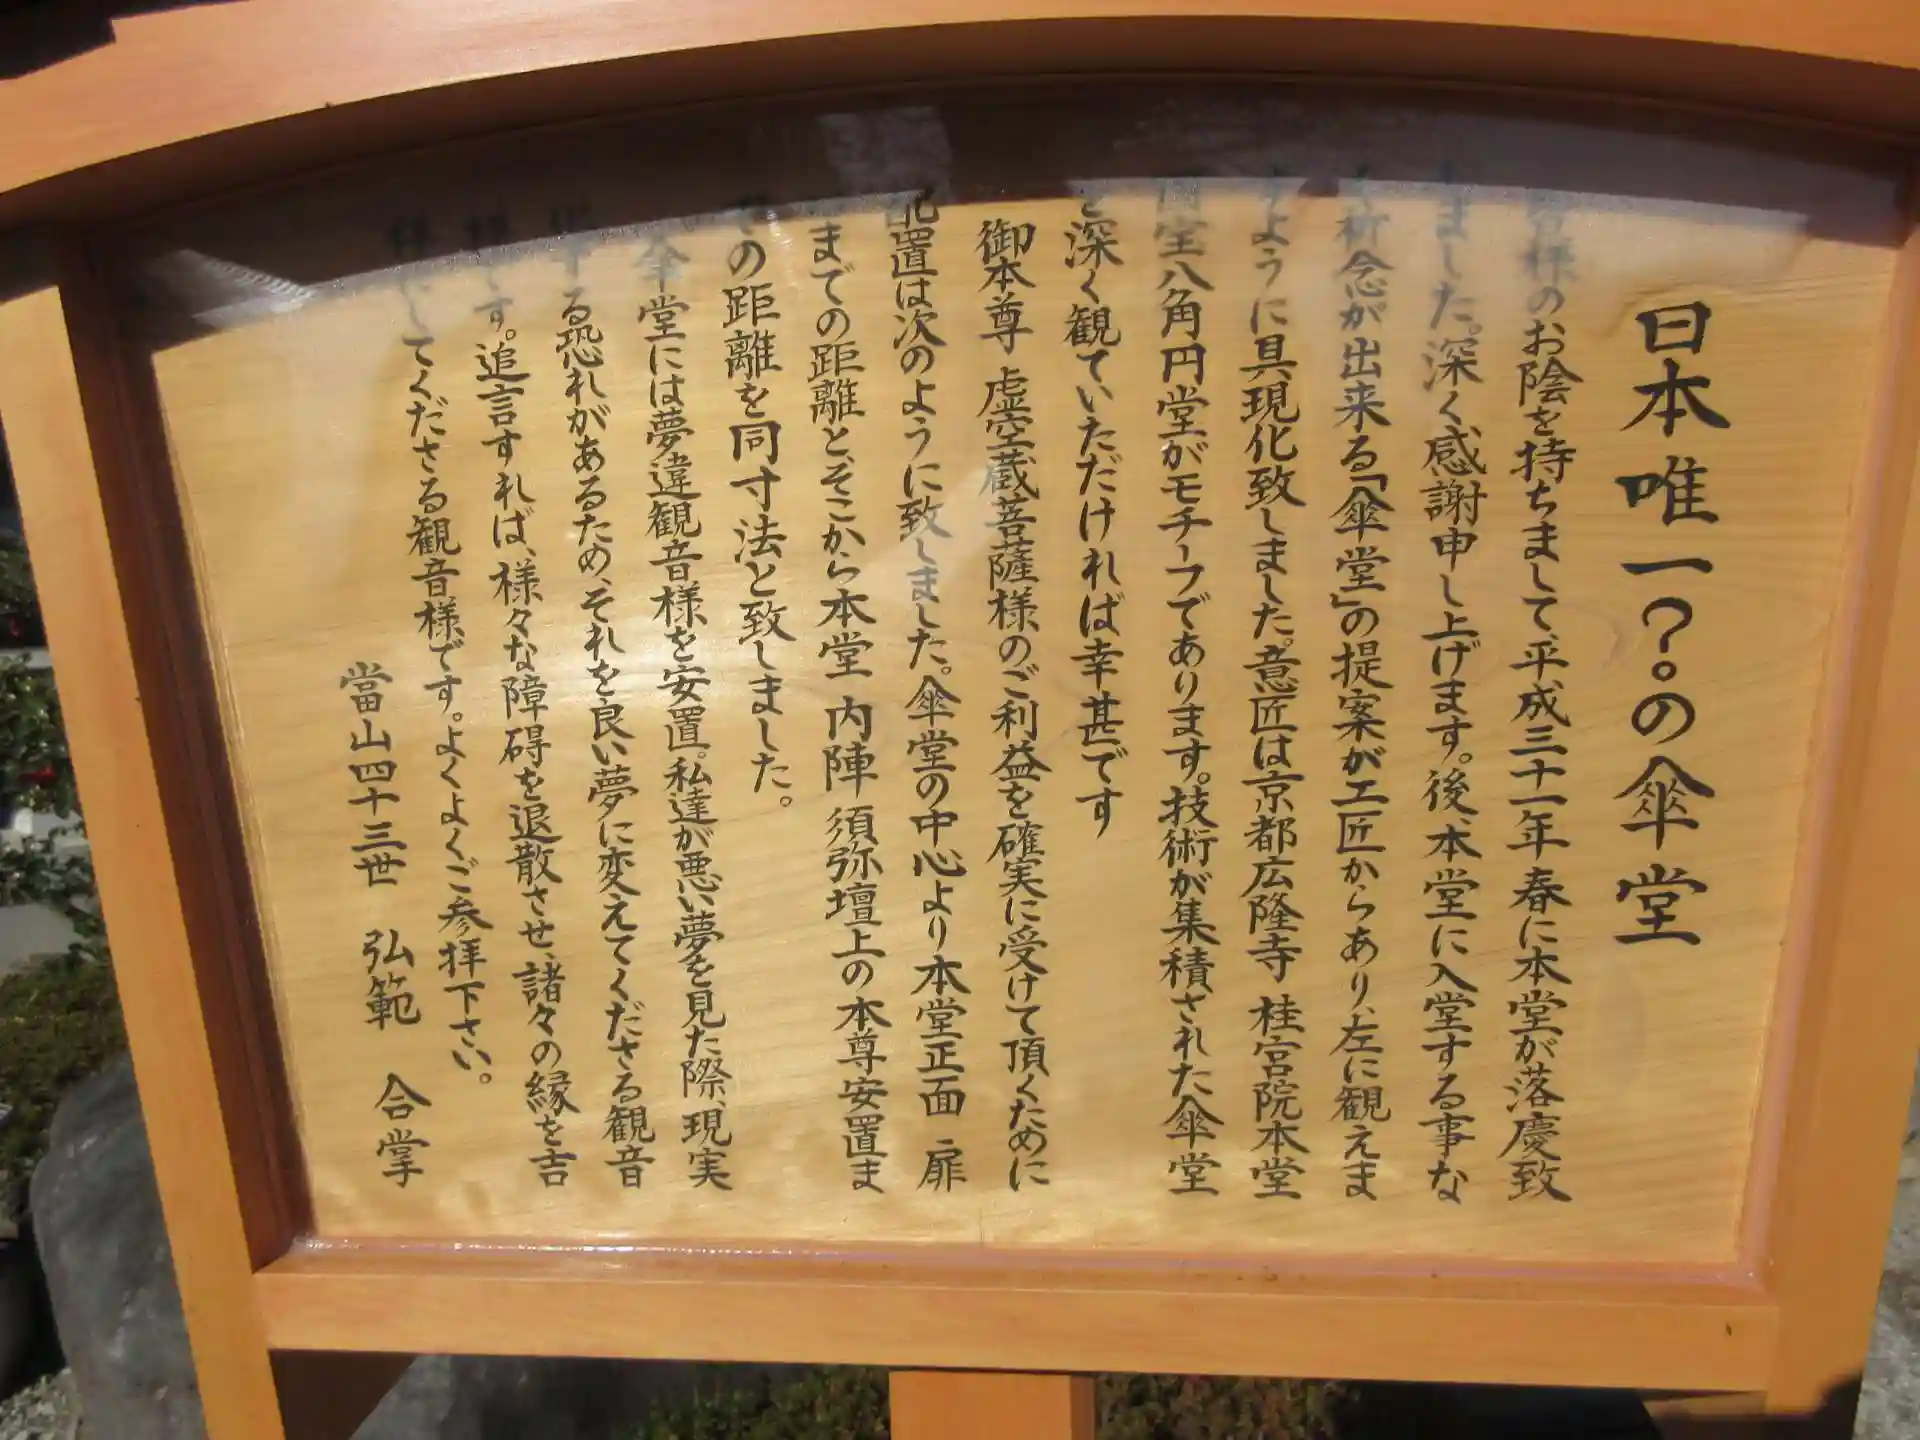 日本唯一?。の傘堂
皆様のお陰を持ちまして、平成三十一年春に本堂が落慶致
しました。深く感謝申し上げます。後、本堂に入堂する事な
く祈念が出来る「傘堂」の提案が工匠からあり、左に観えま
すように具現化致しました。意匠は京都広隆寺 桂宮院本堂
堂八角円堂がモチーフであります。技術が集積された傘堂
を深く観ていただければ幸甚です
御本尊 虚空蔵菩薩様のご利益を確実に受けて頂くために
配置は次のように致しました。傘堂の中心より本堂正面 扉
までの距離と、そこから本堂 内陣 須弥壇上の本尊安置ま
での距離を同寸法と致しました。
傘堂には夢違観音様を安置。私達が悪い夢を見た際、現実
する恐れがあるため、それを良い夢に変えてくださる観音
様です。追言すれば、様々な障碍を退散させ、諸々の縁を吉
してくださる観音様です。よくよくご参拝下さい。
當山四十三世 弘範 合掌